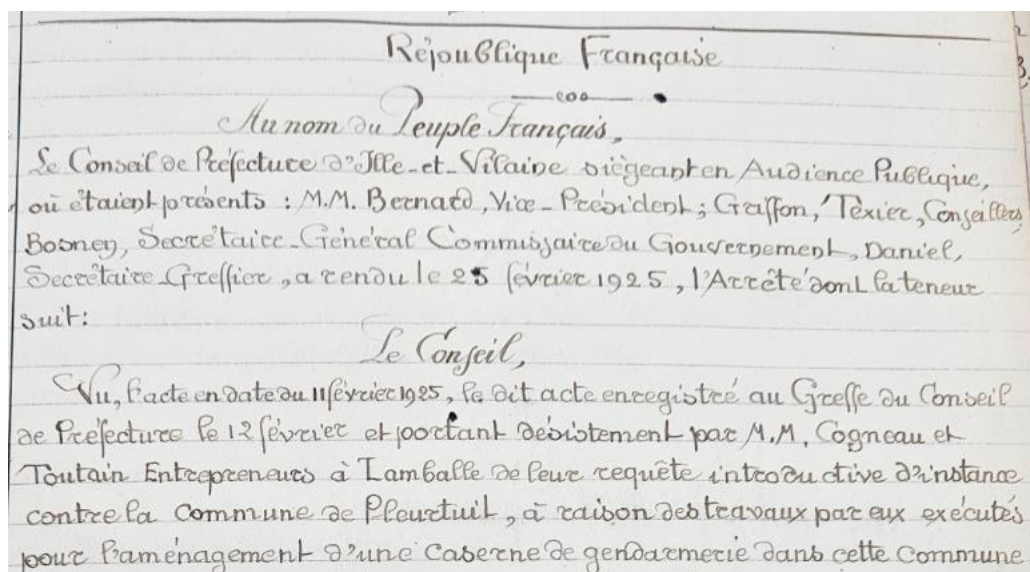 République Française
Au nom du Peuple Français,
Le Conseil de Préfecture d'Ille-et-Vilaine siégeant en Audience Publique,
où étaient présents : M.M. Bernard, Vice-Président ; Graffon, Texier, Conseillers,
Bosney, Secrétaire-Général Commissaire du Gouvernement, Daniel,
Secrétaire-Greffier, a rendu le 25 février 1925, l'Arrêté dont la teneur
suit :
Le Conseil,
Vu, l'acte en date du 11 février 1925, le dit acte enregistré au Greffe du Conseil
de Préfecture le 12 février et portant désistement par M.M. Cogneau et
Toutain Entrepreneurs à Lamballe de leur requête introductive d'instance
contre la Commune de Pleurtuit, à raison des travaux par eux exécutés
pour l'aménagement d'une caserne de gendarmerie dans cette Commune